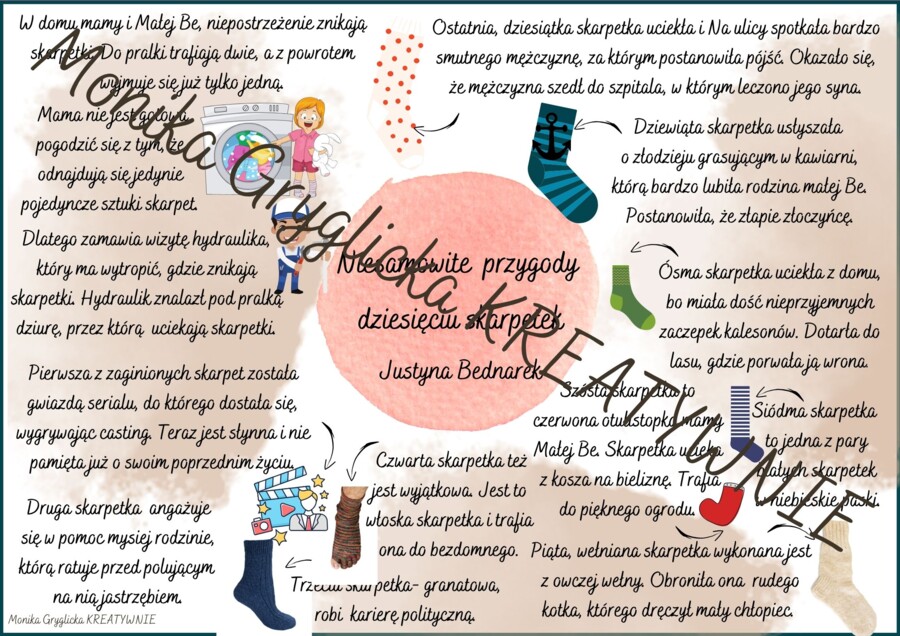 W domu mamy i Małej Be, niepostrzeżenie znikają
skarpetki. Do pralki trafiają dwie, a z powrotem
wyjmuje się już tylko jedną.
Mama nie jest gotowa
pogodzić się z tym, że
odnajdują się jedynie
pojedyncze sztuki skarpet.
Dlatego zamawia wizytę hydraulika,
który ma wytropić, gdzie znikają
skarpetki. Hydraulik znalazł pod pralką
dziurę, przez którą uciekają skarpetki.
Pierwsza z zaginionych skarpet została
gwiazdą serialu, do którego dostała się,
wygrywając casting. Teraz jest słynna i nie
pamięta już o swoim poprzednim życiu.
Druga skarpetka angażuje
się w pomoc mysiej rodzinie,
którą ratuje przed polującym
na nią jastrzębiem.
Monika Gryglicka KREATYWNIE
Niesamowite przygody
dziesięciu skarpetek
Justyna Bednarek
Czwarta skarpetka też
jest wyjątkowa. Jest to
włoska skarpetka i trafia
ona do bezdomnego.
Trzecia skarpetka- granatowa,
robi karierę polityczną.
Ostatnia, dziesiątka skarpetka uciekła i Na ulicy spotkała bardzo
smutnego mężczyznę, za którym postanowiła pójść. Okazało się,
że mężczyzna szedł do szpitala, w którym leczono jego syna.
Dziewiąta skarpetka usłyszała
o złodzieju grasującym w kawiarni,
którą bardzo lubiła rodzina małej Be.
Postanowiła, że złapie złoczyńcę.
Ósma skarpetka uciekła z domu,
bo miała dość nieprzyjemnych
zaczepek kalesonów. Dotarła do
lasu, gdzie porwała ją wrona.
Siódma skarpetka
to jedna z pary
białych skarpetek
w niebieskie paski.
Szósta skarpetka to
czerwona otulastopka mamy
Małej Be. Skarpetka ucieka
z kosza na bieliznę. Trafia
do pięknego ogrodu.
Piąta, wełniana skarpetka wykonana jest
z owczej wełny. Obroniła ona rudego
kotka, którego dręczył mały chłopiec.
Monika Gryglicka KREATYWNIE